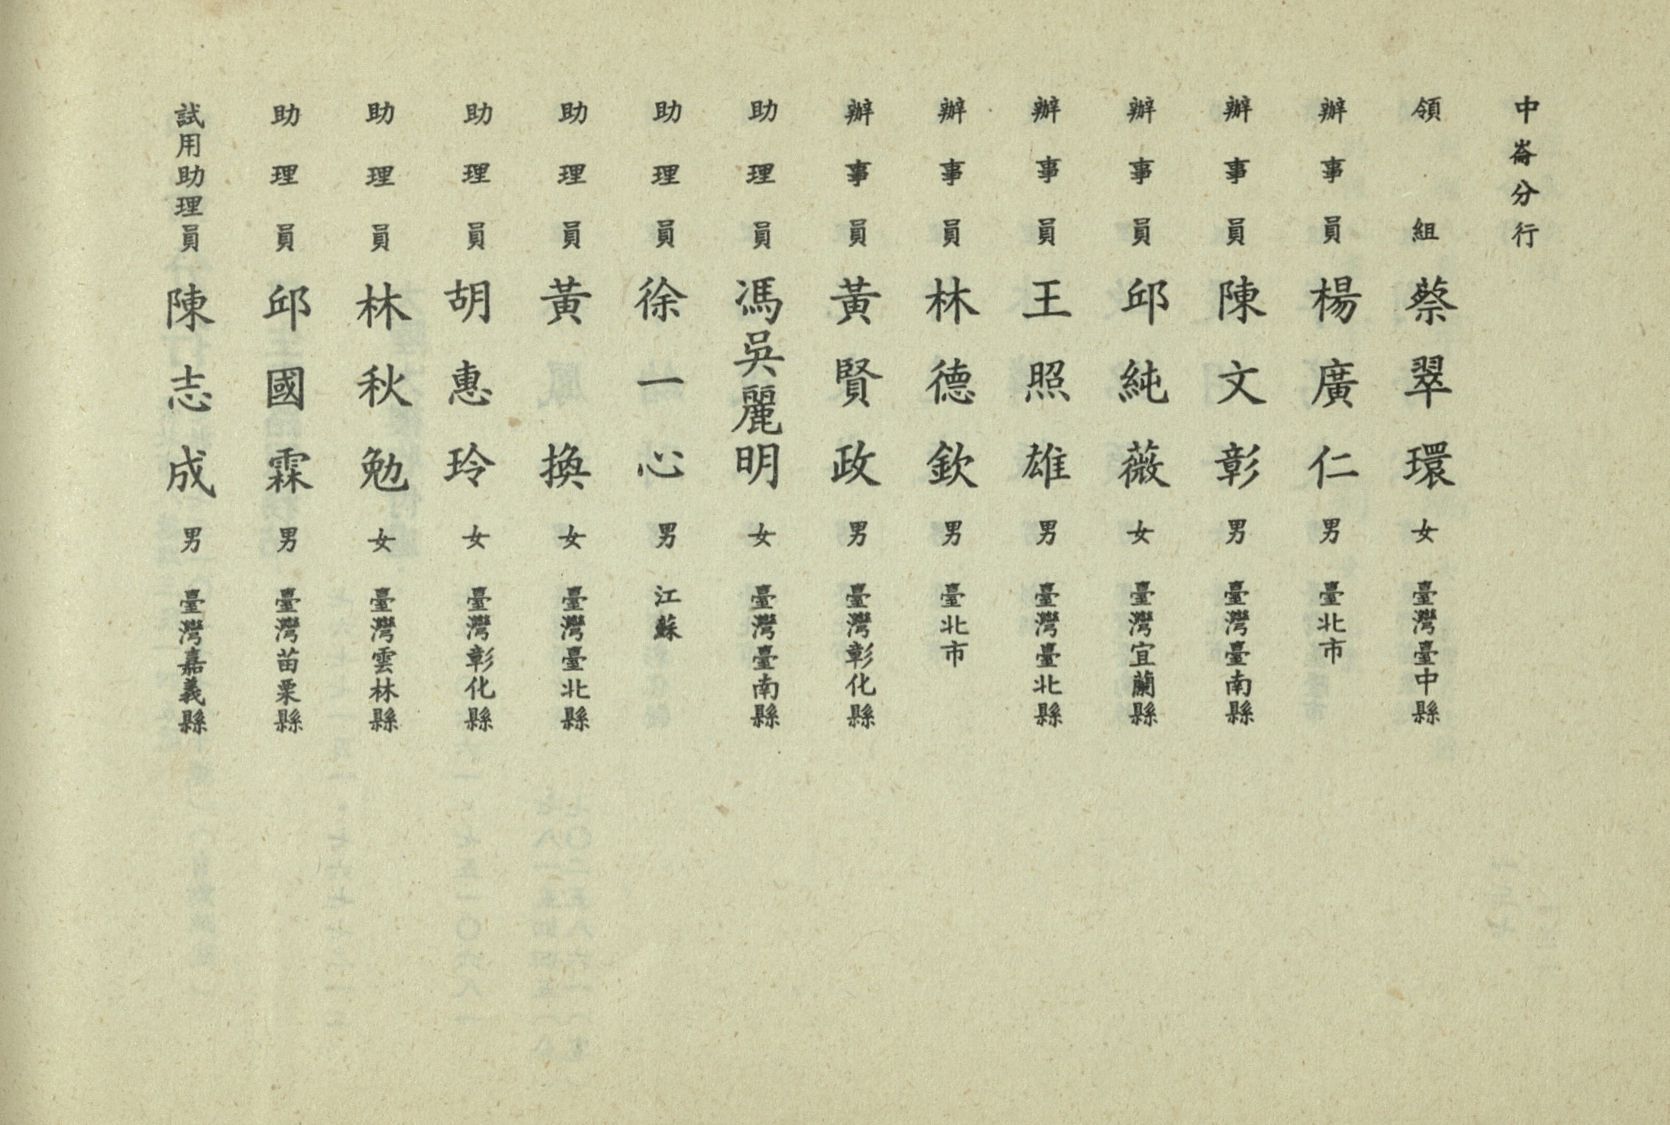 中崙分行
領組 蔡翠環 女 臺灣臺中縣
辦事員 楊廣仁 男 臺北市
辦事員 陳文彰 男 臺灣臺南縣
辦事員 邱純薇 女 臺灣宜蘭縣
辦事員 王照雄 男 臺灣臺北縣
辦事員 林德欽 男 臺北市
辦事員 黃賢政 男 臺灣彰化縣
助理員 馮吳麗明 女 臺灣臺南縣
助理員 徐一心 男 江蘇
助理員 黃換 女 臺灣臺北縣
助理員 胡惠玲 女 臺灣彰化縣
助理員 林秋勉 女 臺灣雲林縣
助理員 邱國霖 男 臺灣苗栗縣
試用助理員 陳志成 男 臺灣嘉義縣